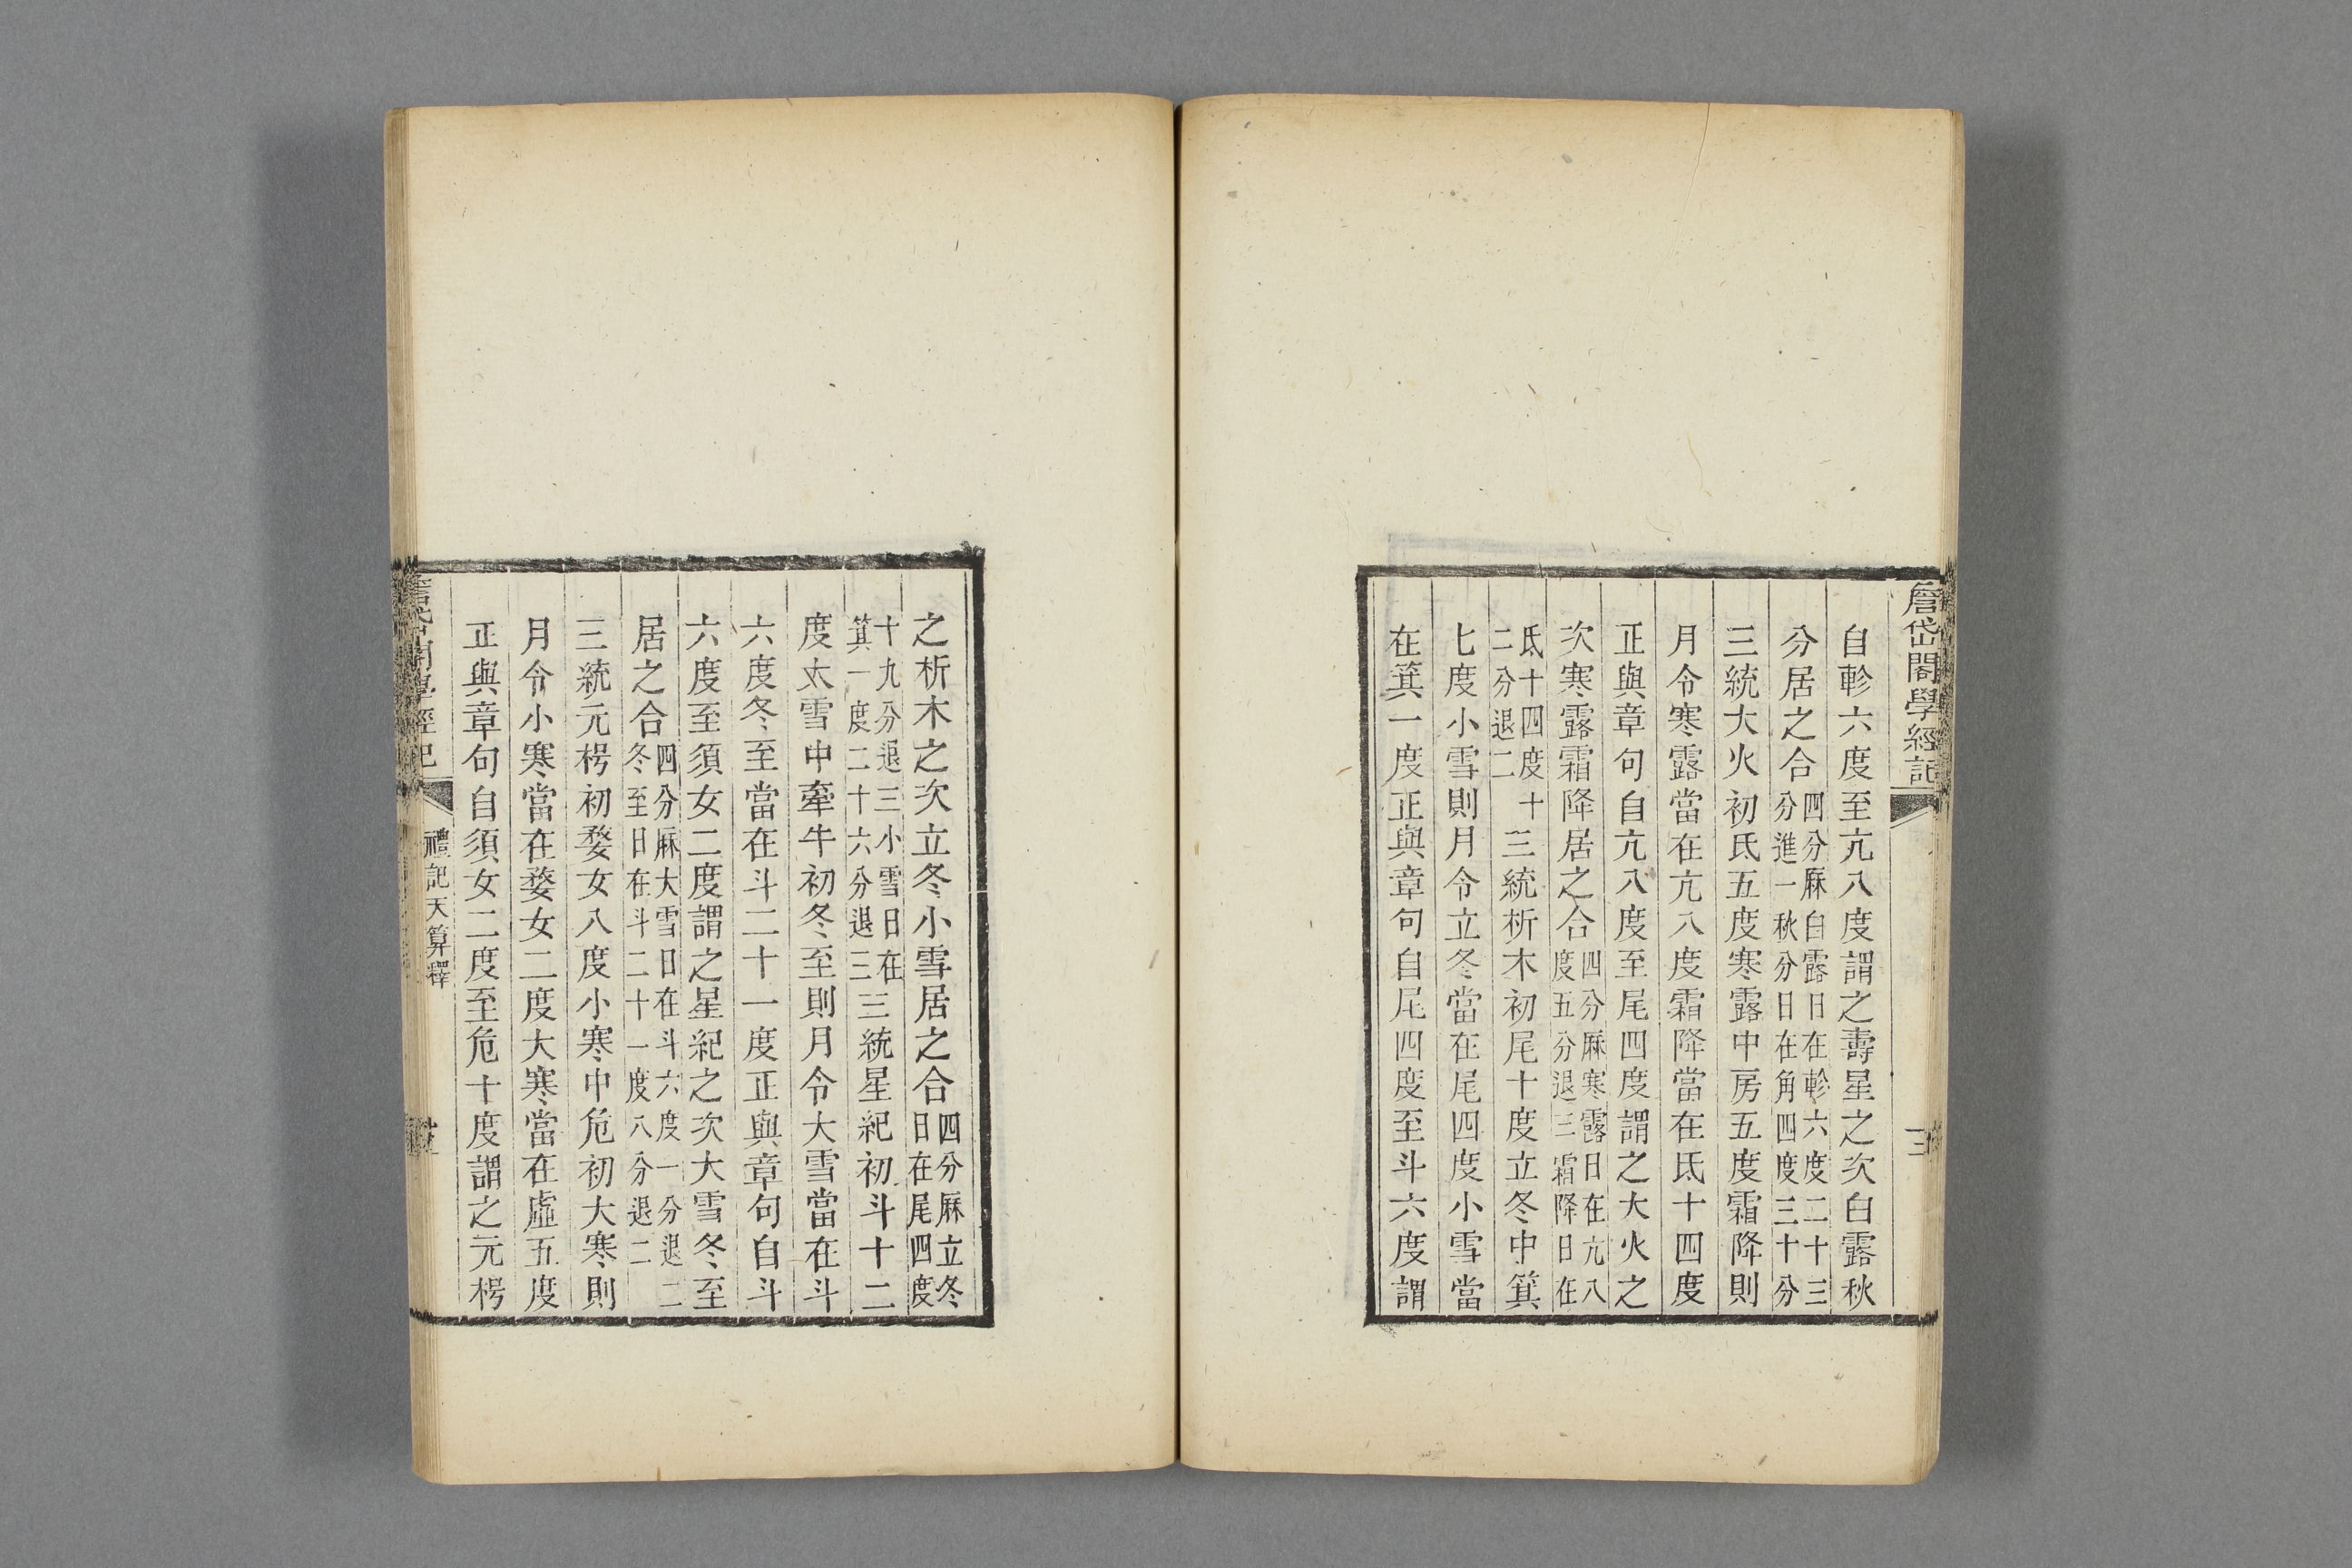 詹岱閣學經記
三
自軫六度至亢八度謂之壽星之次白露秋
分居之合四分厤白露日在軫六度二十三分進一秋分日在角四度三十分
三統大火初氐五度寒露中房五度霜降則
月令寒露當在亢八度霜降當在氐十四度
正與章句自亢八度至尾四度謂之大火之
次寒露霜降居之合四分厤寒露日在亢八度五分退三霜降日在
氐十四度十二分退二三統析木初尾十度立冬中箕
七度小雪則月令立冬當在尾四度小雪當
在箕一度正與章句自尾四度至斗六度謂
之析木之次立冬小雪居之合四分厤立冬日在尾四度
十九分退三小雪日在箕一度二十六分退三三統星紀初斗十二
度大雪中牽牛初冬至則月令大雪當在斗
六度冬至當在斗二十一度正與章句自斗
六度至須女二度謂之星紀之次大雪冬至
居之合四分厤大雪日在斗六度一分退二冬至日在斗二十一度八分退二
三統元枵初婺女八度小寒中危初大寒則
月令小寒當在婺女二度大寒當在虛五度
正與章句自須女二度至危十度謂之元枵
禮記天算釋